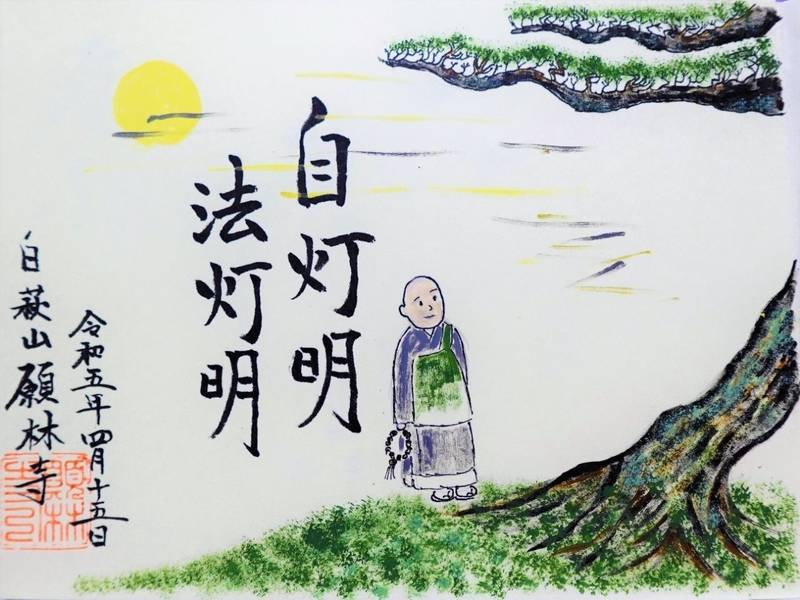 自灯明
法灯明
令和五年四月十五日
白萩山願林寺